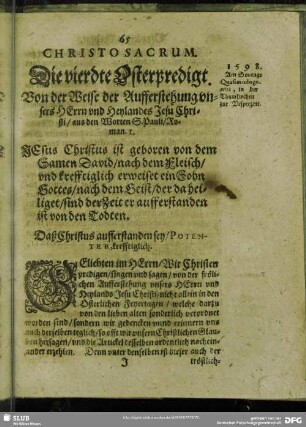 65
CHRISTO SACRUM.
Die vierdte Osterpredigt.
1598.
Am Sontage
Quasimodoge-
niti, in der
Thumkirchen
zur Vesperzeit.
Von der Weise der Aufferstehung vn-
sers HErrn vnd Heylandes Jesu Chri-
sti/ aus den Worten S. Pauli/ Ro-
man. 1.
JEsus Christus ist geboren von dem
Samen David/ nach dem Fleisch/
vnd krefftiglich erweiset ein Sohn
Gottes/ nach dem Geist/ der da hei-
liget/ sind der Zeit er aufferstanden
ist von den Todten.
Daß Christus aufferstanden sey/ POTEN-
TER, krefftiglich.
GEliebten im HErrn/ Wir Christen
predigen/ singen vnd sagen/ von der fröli-
chen Aufferstehung vnsers HErrn vnd
Heylands Jesu Christi/ nicht allein in den
Osterlichen Feyertagen/ welche darzu
von den lieben alten sonderlich verordnet
worden sind/ sondern wir gedencken vnd erinnern vns
auch derselben teglich/ so offt wir vnsern Christlichen Glau-
ben hersagen/ vnd die Artickel desselben ordentlich nach ein-
ander erzehlen. Denn vnter denselben ist dieser auch der
J
tröstlich-
SLUB
Wir führen Wissen.
DFG
Gefördert durch die
Deutsche Forschungsgemeinschaft